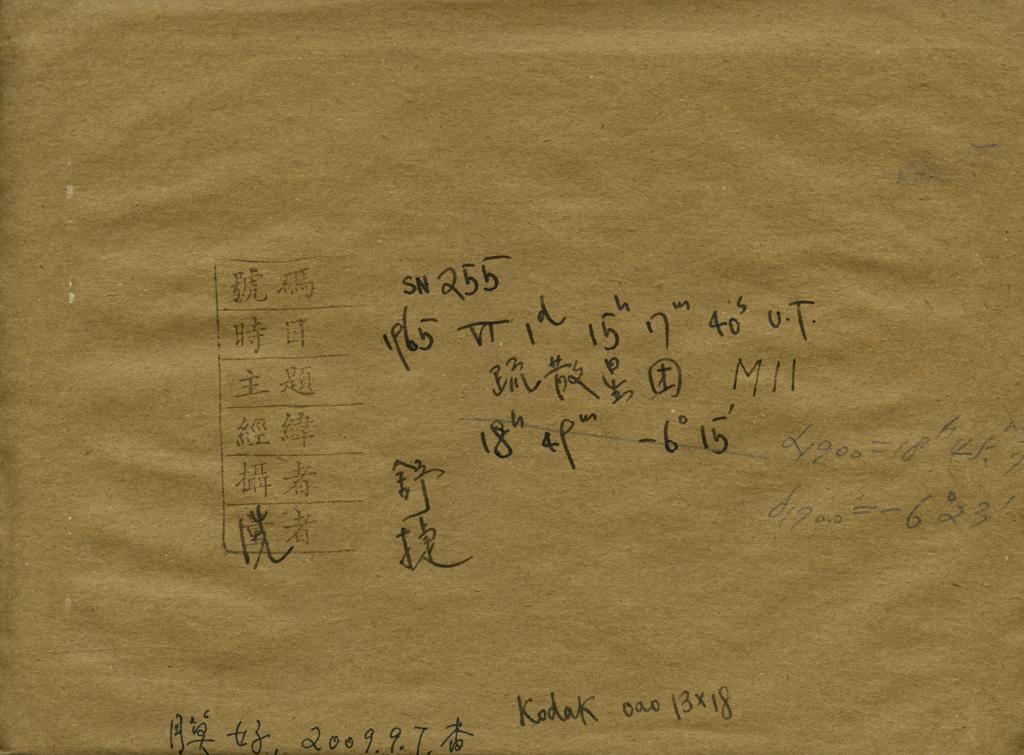 號碼 SN 255
時日 1965 VI 1d 15h 17m 40s U.T.
主題 疏散星团 M11
經緯 18h 49m -6° 15′
α1900=18h 48.
δ1900=-6°23′
攝者 舒
洗者 捷
Kodak oao 13×18
膜好, 2009.9.7.查